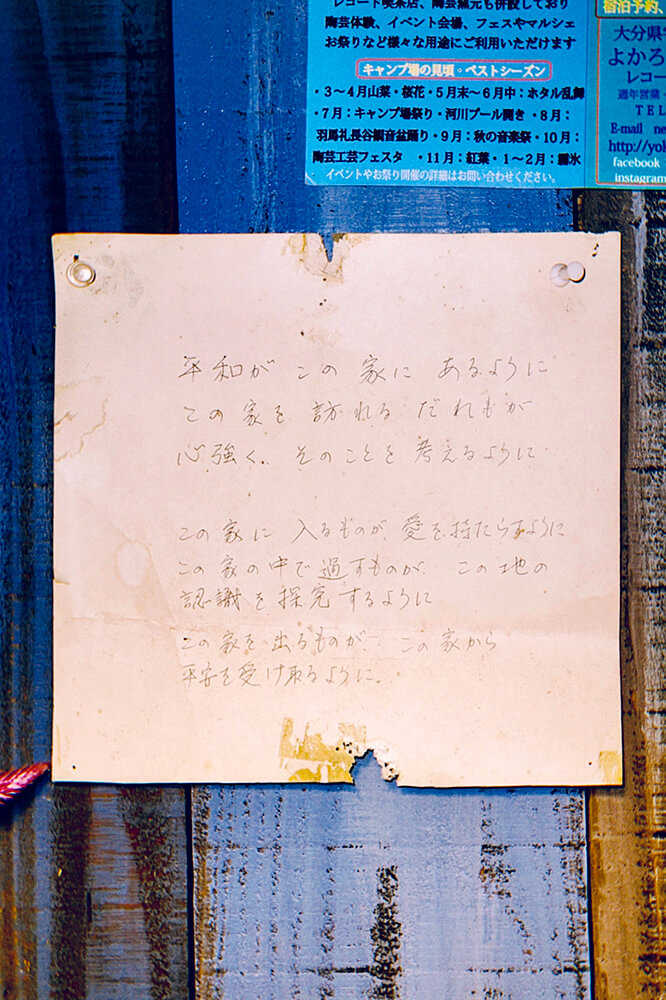 レコード喫茶店、陶芸窯元も併設しており
陶芸体験、イベント会場、フェスやマルシェ
お祭りなど様々な用途にご利用いただけます
キャンプ場の見頃・ベストシーズン
・3～4月山菜・桜花・5月末～6月中：ホタル乱舞
・7月：キャンプ場祭り・河川プール開き・8月：
羽馬礼長谷観音盆踊り・9月：秋の音楽祭・10月：
陶芸工芸フェスタ ・11月：紅葉・1～2月：霧氷
イベントやお祭り開催の詳細はお問い合わせください。
宿泊予約、
大分県
よかろ
レコー
週年営業・
TEL
E-mail ne
http://yok
facebook
instagram
平和が この 家に あるように
この 家を 訪れる だれもが
心強く、そのことを 考えるように
この家に 入るものが、愛を持たらすように
この 家の中で 過すものが、この 地の
認識を 探究するように
この 家を 出るものが、この家から
平安を受け取るように。